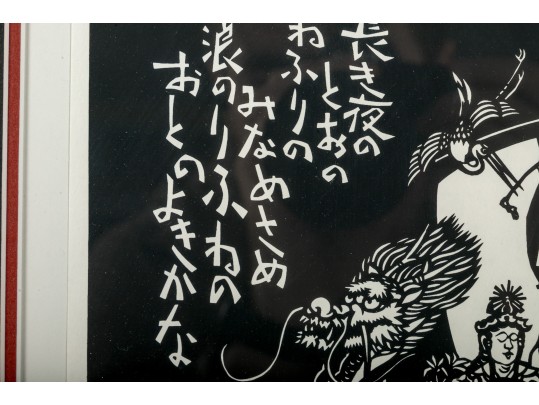 長き夜の
とおの
ねふりの
みなめさめ
浪のりふねの
おとのよきかな